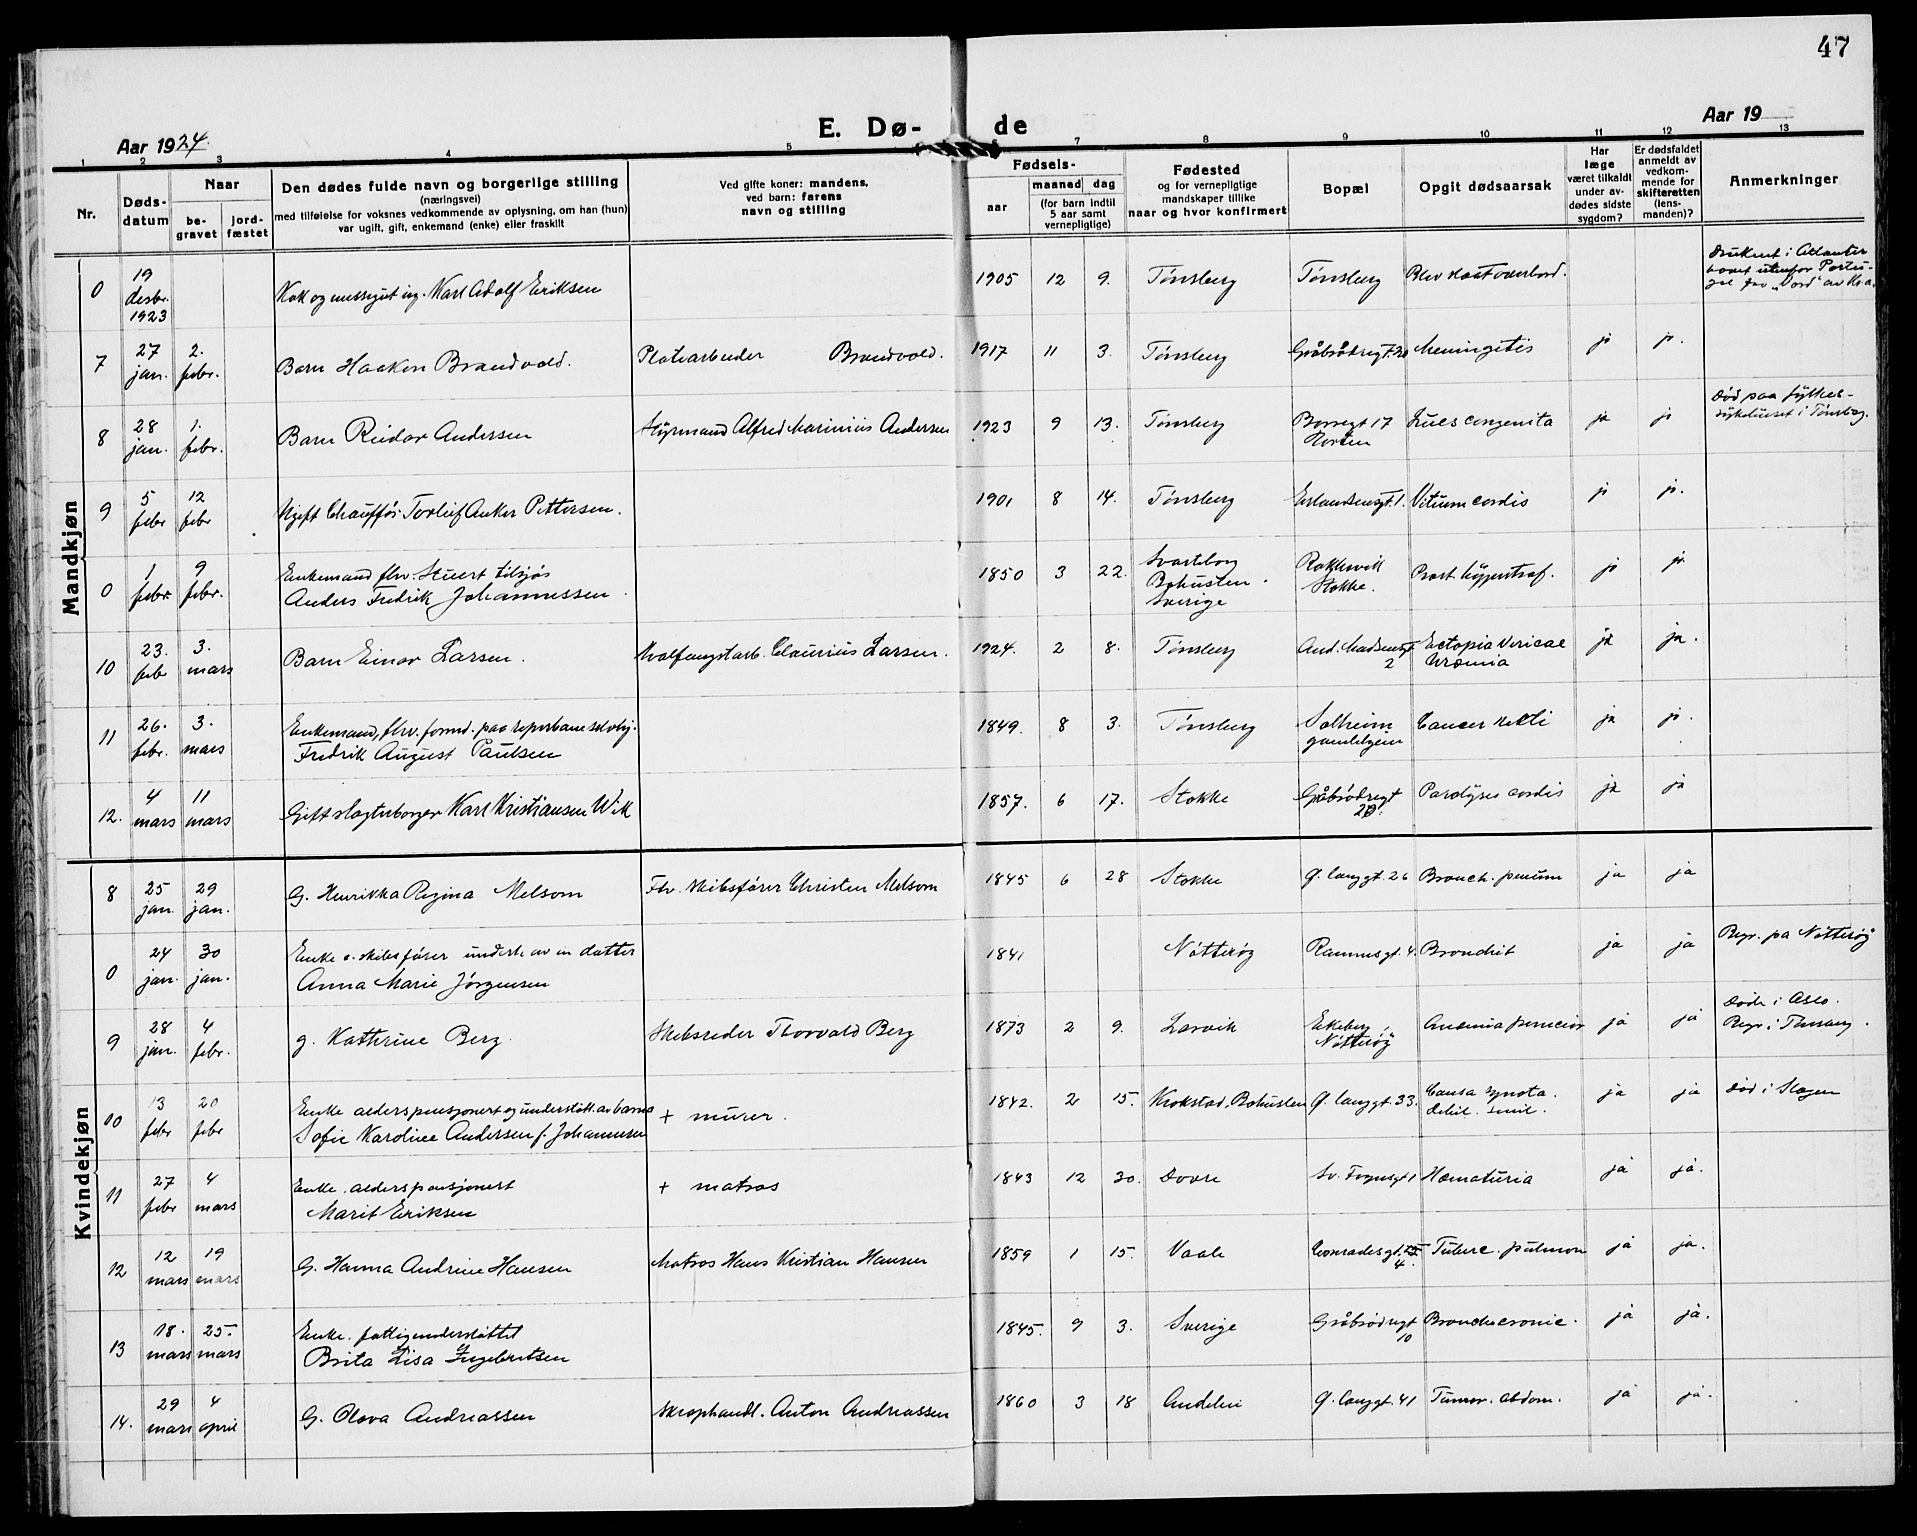 47
Aar 1924.
E. Dø-
de
Aar 19
1 2 3 4 5 7 8 9 10 11 12 13
Nr.
Døds-
datum
Naar
be-
gravet
jord-
fæstet
Den dødes fulde navn og borgerlige stilling
(næringsvei)
med tilføielse for voksnes vedkommende av oplysning, om han (hun)
var ugift, gift, enkemand (enke) eller fraskilt
Ved gifte koner: mandens,
ved barn: farens
navn og stilling
Fødsels-
aar
maaned dag
(for barn indtil
5 aar samt
vernepligtige)
Fødested
og for vernepligtige
mandskaper tillike
naar og hvor konfirmert
Bopæl
Opgit dødsaarsak
Har
læge
været tilkaldt
under av-
dødes sidste
sygdom?
Er dødsfaldet
anmeldt av
vedkom-
mende for
skifteretten
(lens-
manden)?
Anmerkninger
Mandkjøn
0 19 desbr. 1923 Kok og ug. Karl Adolf Eriksen 1905 12 9. Tønsberg Tønsberg Blev slaat overbord. Druknet i Atlanter
havet utenfor Portu-
gal fra "Nord" av Kr.a.
7 27 jan. 2. febr. Barn Haakon Brandvold. Platearbeider Brandvold. 1917 11 3. Tønsberg Gråbrødregt. 20 Meningitis ja ja.
8 28 jan. 1. febr. Barn Reidar Andersen Styrmand Alfred Marinius Andersen 1923 9 13. Tønsberg Borregt 17 Horten Lues congenita ja ja Død paa fylkes-
sykehuset i Tønsberg.
9 5 febr 12 febr Ugift Chauffør Torleif Anker Pettersen. 1901 8 14. Tønsberg Erlandsensgt. 1. Vitium cordis ja ja.
0 1 febr. 9 febr. Enkemand fhv. Stuert tilsjøs
Anders Fredrik Johannessen 1850 3 22. Svarteborg
Bohuslen.
Sverige Rakkevik
Stokke. Prost. hypertrof. ja ja.
10 23. febr 3. mars Barn Einar Larsen. Hvalfangstarb. Claurius Larsen. 1924. 2 8. Tønsberg And. Madsensgt. 2 Ectopia Vesicae
Uræmia ja ja.
11 26. febr. 3. mars Enkemand, fhv. formd. paa reperbane selvhj.
Fredrik August Paulsen 1849. 8 3. Tønsberg Solheim
gamlehjem Cancer rekti ja ja.
12. 4 mars 11 mars Gift slagterborger Karl Kristiansen Wik 1857. 6 17. Stokke Gåbrødregt
20. Paralyses cordis ja ja
Kvindekjøn
8 25 jan. 29 jan. G. Henrikka Regina Melsom Fhv. skibsfører Christen Melsom 1845 6 28 Stokke Ø. langgt. 26 Bronch. pneum ja ja
0 24 jan. 30 jan. Enke e. skibsfører underh. av en datter
Anna Marie Jørgensen 1841 Nøtterøy Ramnesgt. 4. Bronchit ja ja Begr. pa Nøtterøy
9 28 jan. 4 febr. g. Kathrine Berg. Skibsreder Thorvald Berg 1873 2 9. Larvik Ekeberg,
Nøtterøy Anemia pernicio ja ja Døde i Oslo.
Begr. i Tønsberg.
10 13 febr 20 febr Enke alderspensjonert og understøtt. av barna
Sofie Karoline Andersen f. Johannesen + murer. 1842. 2 15. Krokstad, Bohuslen Ø. langgt. 33. Causa ignota.
debil. senil. ja ja Død i Slagen
11 27 febr 4 mars Enke. alderspensjonert
Marit Eriksen + matros 1843 12 30. Dovre Sv. Foynsgt 1 Hæmaturia ja ja.
12 12 mars 19 mars G. Hanna Andrine Hansen Matros Hans Kristian Hansen 1859 1 15. Vaale Conradisgt. 4. Tuberc. pulmon ja ja.
13 18. mars 25. mars Enke. fattigunderstøttet
Brita Lisa Ingebretsen 1845. 9 3. Sverige Gråbrødregt
10 Bronchit cronic. ja ja.
14. 29 mars 4 april G. Olava Andreassen Skraphandl. Anton Andreassen 1860 3 18 Andebu Ø. langgt. 41 Tumor. abdom. ja ja.